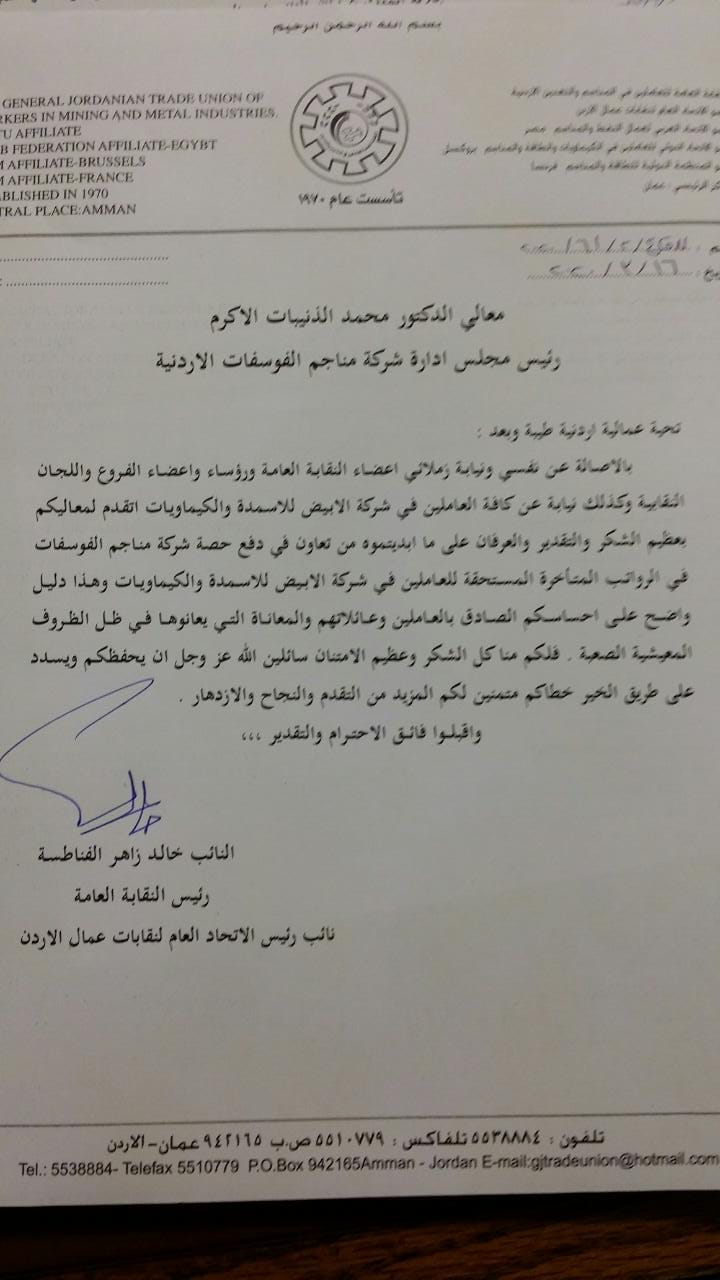 بسم الله الرحمن الرحيم
GENERAL JORDANIAN TRADE UNION OF
RKERS IN MINING AND METAL INDUSTRIES.
TU AFFILIATE
B FEDERATION AFFILIATE-EGYBT
M AFFILIATE-BRUSSELS
M AFFILIATE-FRANCE
ABLISHED IN 1970
TRAL PLACE:AMMAN
تأسست عام ١٩٧٠
معالي الدكتور محمد الذنيبات الاكرم
رئيس مجلس ادارة شركة مناجم الفوسفات الاردنية
تحية عمالية اردنية طيبة وبعد :
بالاصالة عن نفسي ونيابة زملائي اعضاء النقابة العامة ورؤساء واعضاء الفروع واللجان
النقابية وكذلك نيابة عن كافة العاملين في شركة الابيض للاسمدة والكيماويات اتقدم لمعاليكم
بعظيم الشكر والتقدير والعرفان على ما ابديتموه من تعاون في دفع حصة شركة مناجم الفوسفات
في الرواتب المتأخرة المستحقة للعاملين في شركة الابيض للاسمدة والكيماويات وهذا دليل
واضح على احساسكم الصادق بالعاملين وعائلاتهم والمعاناة التي يعانوها في ظل الظروف
المعيشية الصعبة . فلكم منا كل الشكر وعظيم الامتنان سائلين الله عز وجل ان يحفظكم ويسدد
على طريق الخير خطاكم متمنين لكم المزيد من التقدم والنجاح والازدهار .
واقبلوا فائق الاحترام والتقدير ،،،
النائب خالد زاهر الفناطسة
رئيس النقابة العامة
نائب رئيس الاتحاد العام لنقابات عمال الاردن
تلفون : ٥٥٣٨٨٨٤ تلفاكس : ٥٥١٠٧٧٩ ص.ب ٩٤٢١٦٥ عمان-الاردن
Tel.: 5538884- Telefax 5510779 P.O.Box 942165Amman - Jordan E-mail:gjtradeunion@hotmail.com